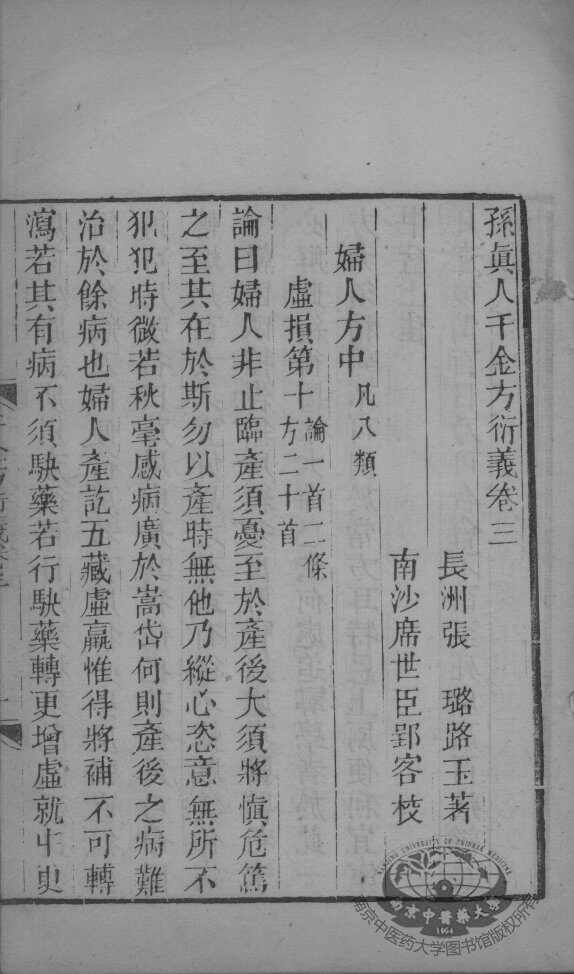 孫眞人千金方衍義卷三
長洲張 璐路玉著
南沙席世臣郢客校
婦人方中 凡八類
虛損第十 論一首二條 方二十首
論曰婦人非止臨產須憂至於產後大須將慎危篤
之至其在於斯勿以產時無他乃縱心恣意無所不
犯犯時微若秋毫感病廣於嵩岱何則產後之病難
治於餘病也婦人產訖五藏虛羸惟得將補不可轉
瀉若其有病不須駃藥若行駃藥轉更增虛就中更
NANJING UNIVERSITY OF CHINESE MEDICINE
南京中醫藥大學
1954
南京中医药大学图书馆版权所有